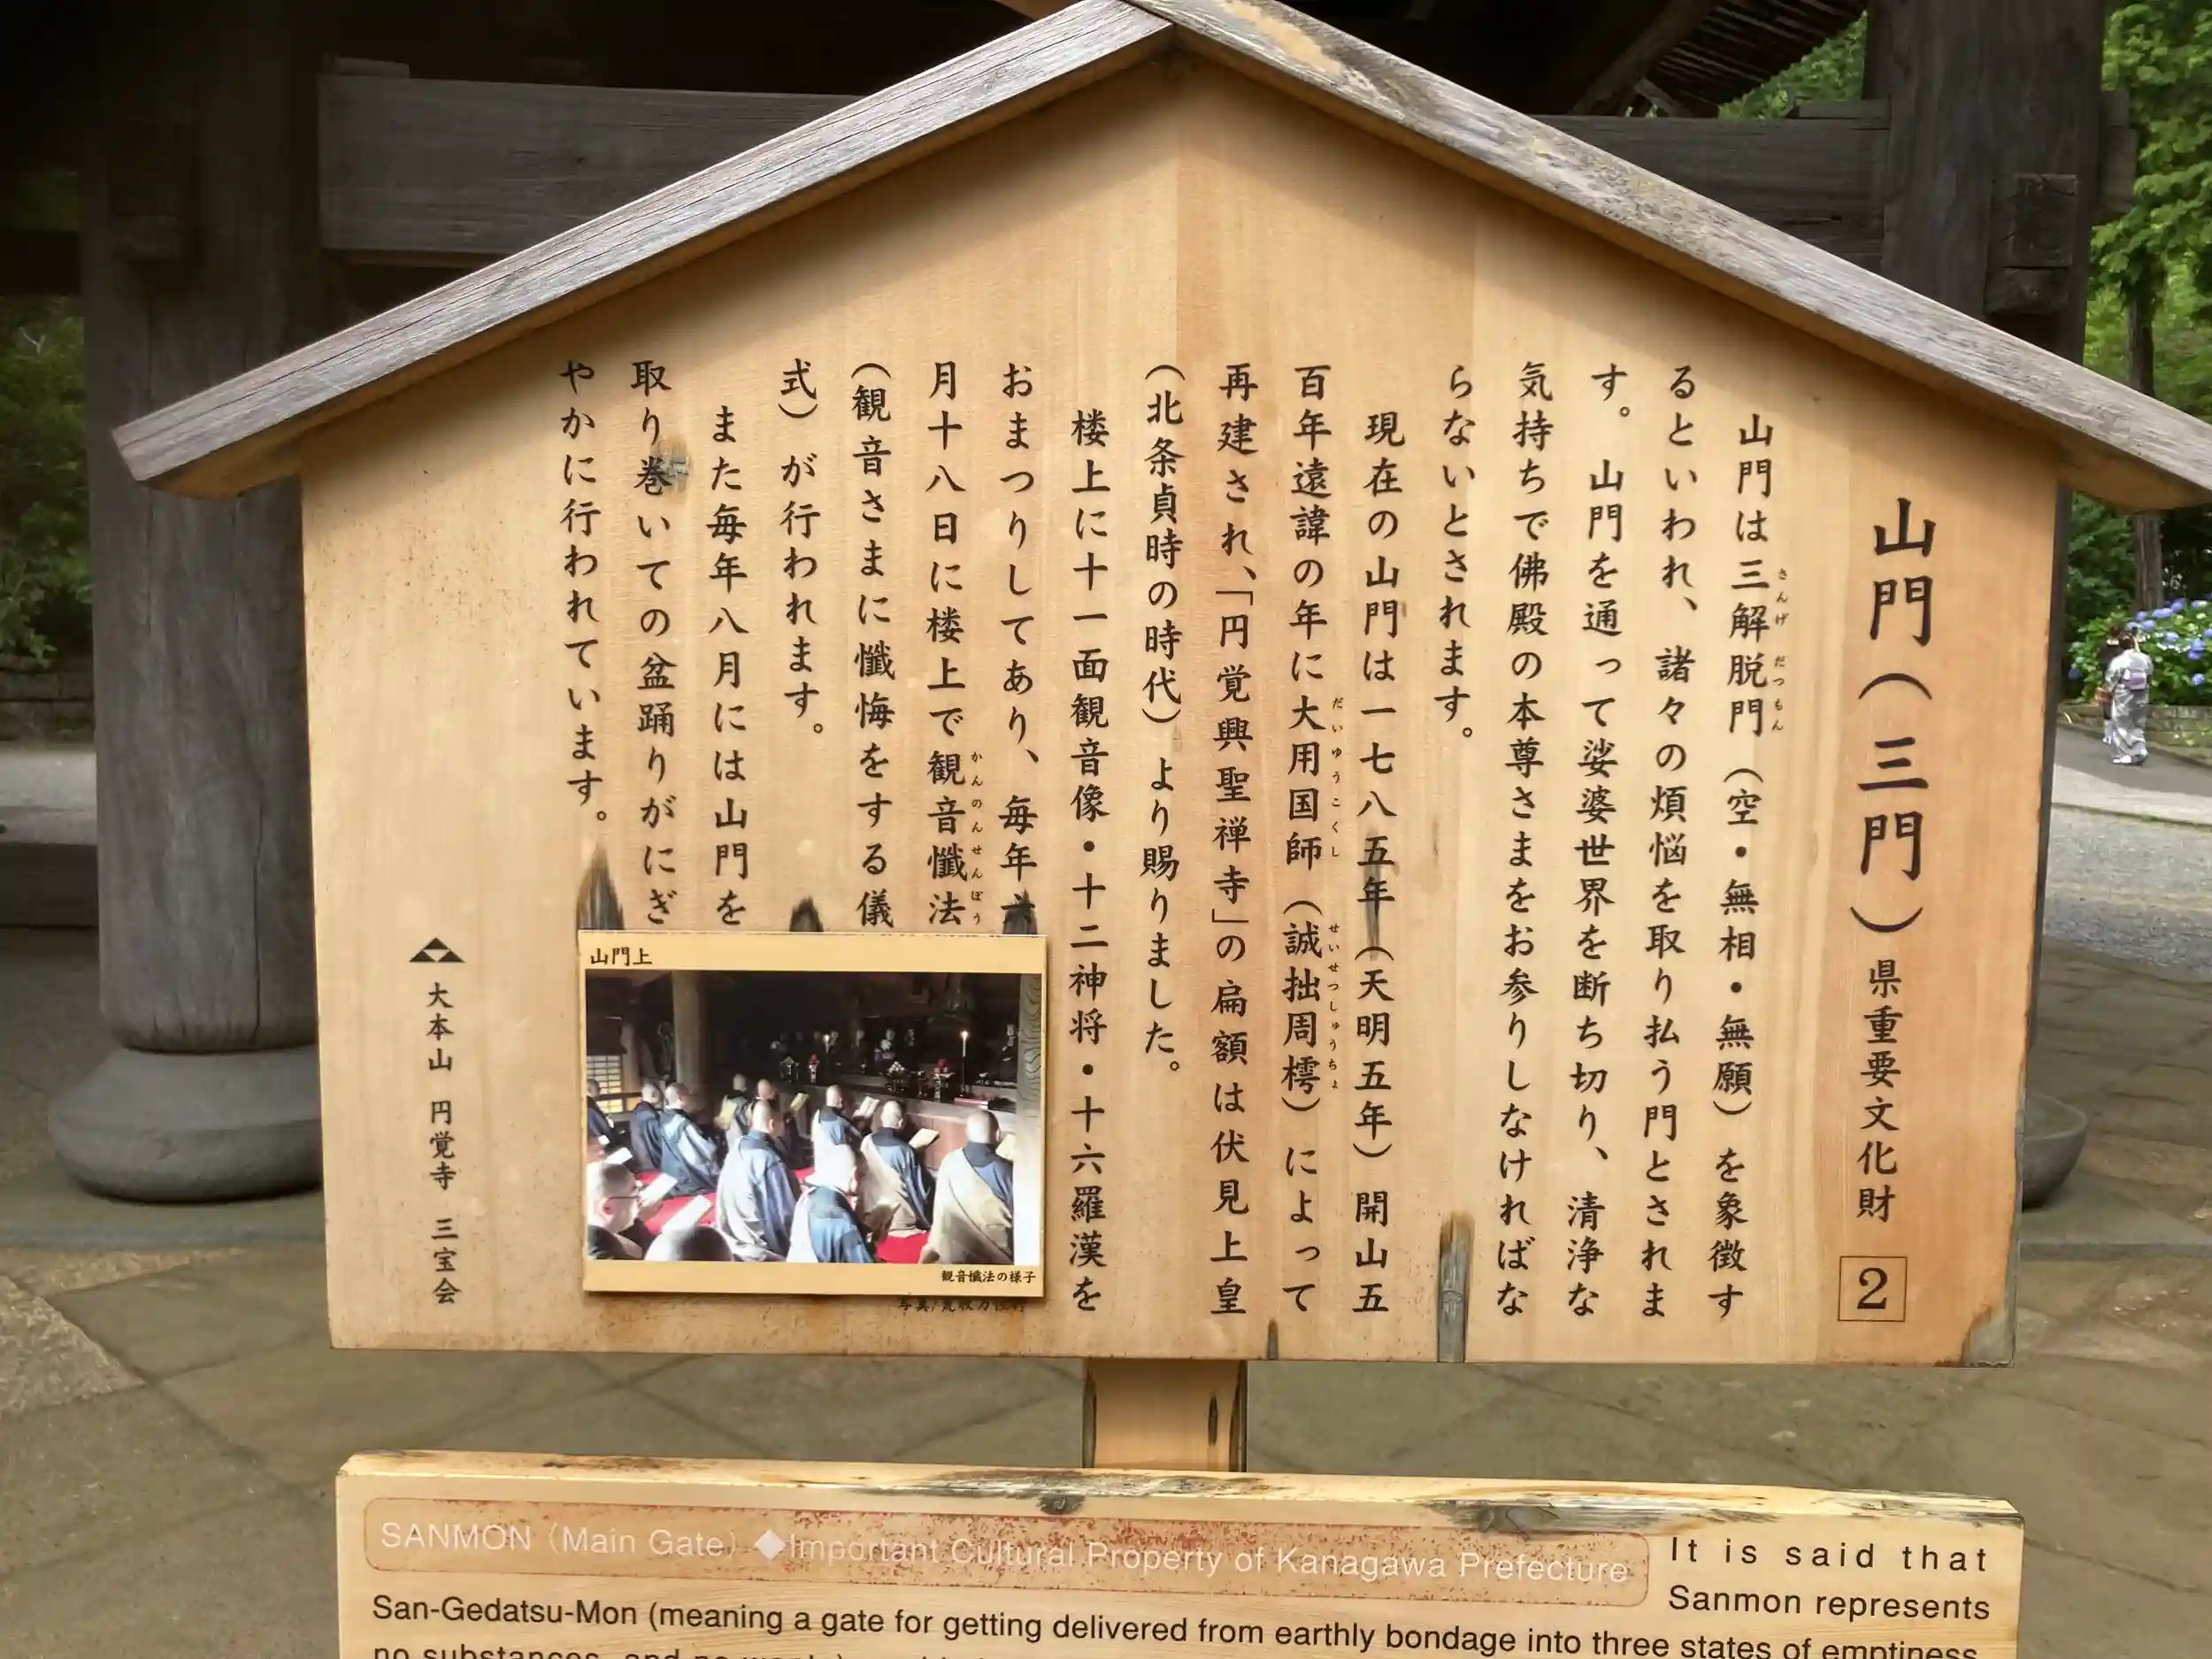 山門（三門）県重要文化財 2
山門は三解脱門（空・無相・無願）を象徴す
さんげ だつもん
るといわれ、諸々の煩悩を取り払う門とされま
す。山門を通って娑婆世界を断ち切り、清浄な
気持ちで佛殿の本尊さまをお参りしなければな
らないとされます。
現在の山門は一七八五年（天明五年）開山五
百年遠諱の年に大用国師（誠拙周樗）によって
だいゆうこくし せいせつしゅうちょ
再建され、「円覚興聖禅寺」の扁額は伏見上皇
（北条貞時の時代）より賜りました。
楼上に十一面観音像・十二神将・十六羅漢を
おまつりしてあり、毎年六
月十八日に楼上で観音懺法
かんのんせんぼう
（観音さまに懺悔をする儀
式）が行われます。
また毎年八月には山門を
取り巻いての盆踊りがにぎ
やかに行われています。
山門上
観音懺法の様子
写真/
大本山 円覚寺 三宝会
SANMON（Main Gate）◆Important Cultural Property of Kanagawa Prefecture
It is said that
Sanmon represents
San-Gedatsu-Mon (meaning a gate for getting delivered from earthly bondage into three states of emptiness,
no substances, and no wants)